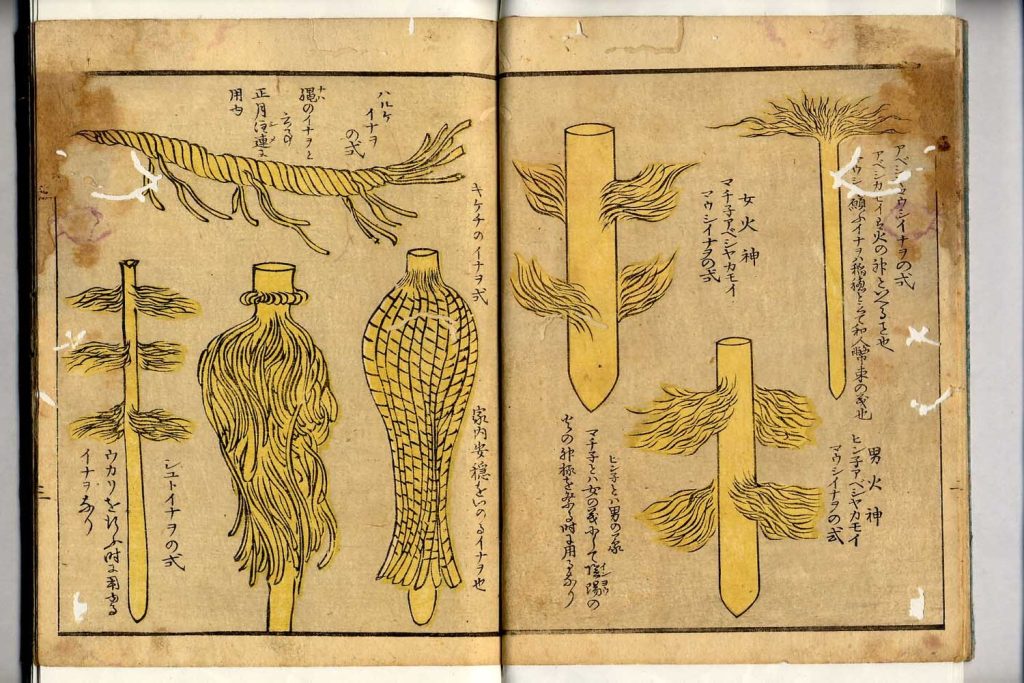 アベシヤマウシイナヲの式
アベシカモイは火の神といへる事也
マウシは願ふイナヲハ稲穂にて和人幣束の義也
男火神
ヒン子アベシヤカモイ
マウシイナヲの式
女火神
マチ子アベシヤカモイ
マウシイナヲの式
ヒン子とハ男の義
マチ子とハ女の義にして陰陽の
の神 を祭る時に用るなり
キケチのイナヲ式
家内安穏をいのるイナヲ也
ハルケ
イナヲ
の式
縄のイナヲと
云事
正月注連に
用ゆ
シュトイナヲの式
ウカリを行ふ時に用ゆる
イナヲなり